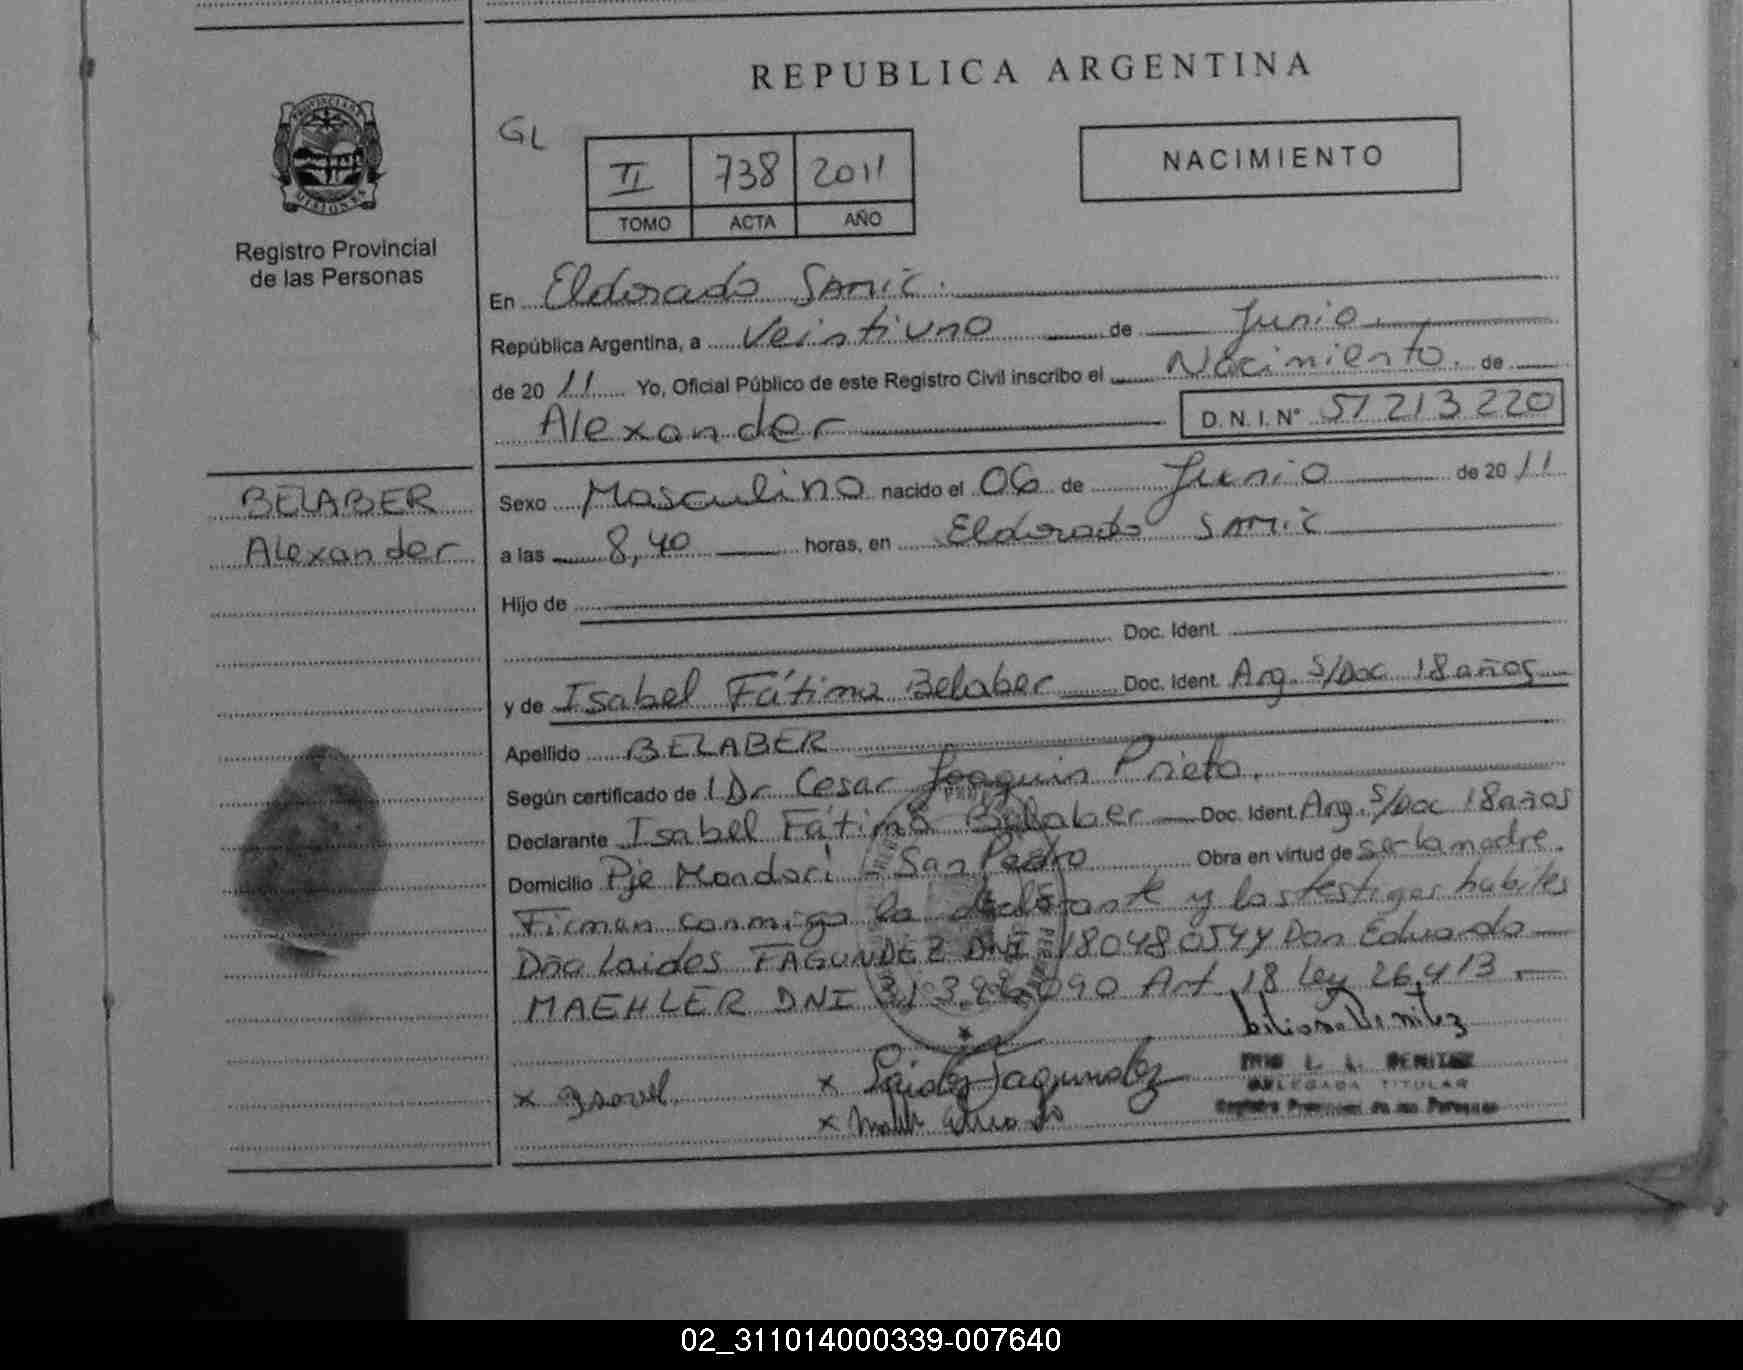 REPUBLICA ARGENTINA
GL
II 738 2011
TOMO ACTA AÑO
NACIMIENTO
PROVINCIA DE
MISIONES
Registro Provincial
de las Personas
BELABER
Alexander
En Eldorado SAMIC.
República Argentina, a Veintiuno de Junio
de 2011 Yo, Oficial Público de este Registro Civil inscribo el Nacimiento de
Alexander D.N.I. N° 51213220
Sexo Masculino nacido el 06 de Junio de 2011
a las 8,40 horas, en Eldorado SAMIC
Hijo de
Doc. Ident.
y de Isabel Fátima Belaber Doc. Ident. Arg. S/Doc 18 años
Apellido BELABER
Según certificado de Dr Cesar Joaquin Prieto.
Declarante Isabel Fátima Belaber Doc. Ident. Arg. S/Doc 18 años
Domicilio Pje Mandori - San Pedro Obra en virtud de ser la madre.
Firman conmigo la declarante y los testigos habiles
Dña Laides FAGUNDEZ DNI 18048054 y Don Eduardo
MAEHLER DNI 090 Art 18 Ley 26,413
Liliana Benitez
L. L. BENITEZ
DELEGADA TITULAR
Registro Provincial de las Personas
x Isavel x Laides Fagundez
x Eduardo
02_311014000339-007640